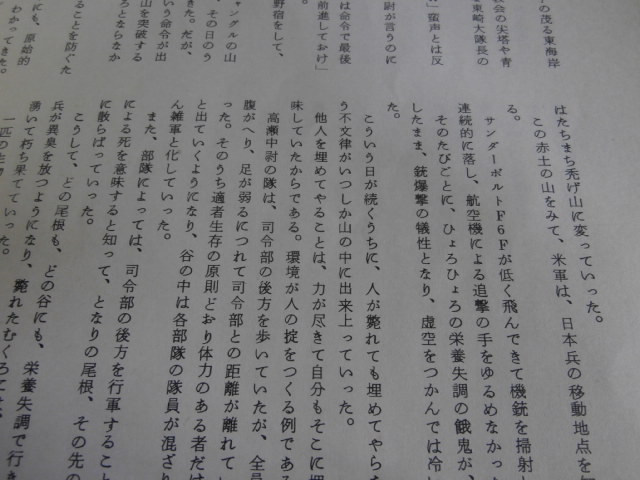 の茂る東海岸
教会の尖塔や青
東崎大隊長の
」蛮声とは反
尉が言うのに
前進しておけ」
は命令で最後
野宿をして、
ャングルの山
、その日のう
た。だが、
いう命令が出
山を突破する
ろとならなか
ることを防ぐた
にも、原始的
わかってきた。
はたちまち禿げ山に変っていった。
この赤土の山をみて、米軍は、日本兵の移動地点を
る。
サンダーボルトF6Fが低く飛んできて機銃を掃射
連続的に落し、航空機による追撃の手をゆるめなかっ
そのたびごとに、ひょろひょろの栄養失調の餓鬼が、
したまま、銃爆撃の犠牲となり、虚空をつかんでは冷
た。
こういう日が続くうちに、人が斃れても埋めてやら
う不文律がいつしか山の中に出来上っていった。
他人を埋めてやることは、力が尽きて自分もそこに埋
味していたからである。環境が人の掟をつくる例であ
高瀬中尉の隊は、司令部の後方を歩いていたが、全
腹がへり、足が弱るにつれて司令部との距離が離れて
った。そのうち適者生存の原則どおり体力のある者だけ
と出ていくようになり、谷の中は各部隊の隊員が混ざり
ん雑軍と化していった。
また、部隊によっては、司令部の後方を行軍すること
による死を意味すると知って、となりの尾根、その先の
に散らばっていった。
こうして、どの尾根も、どの谷にも、栄養失調で行き
兵が異臭を放つようになり、斃れたむくろには、
湧いて朽ち果てていった。
一匹の